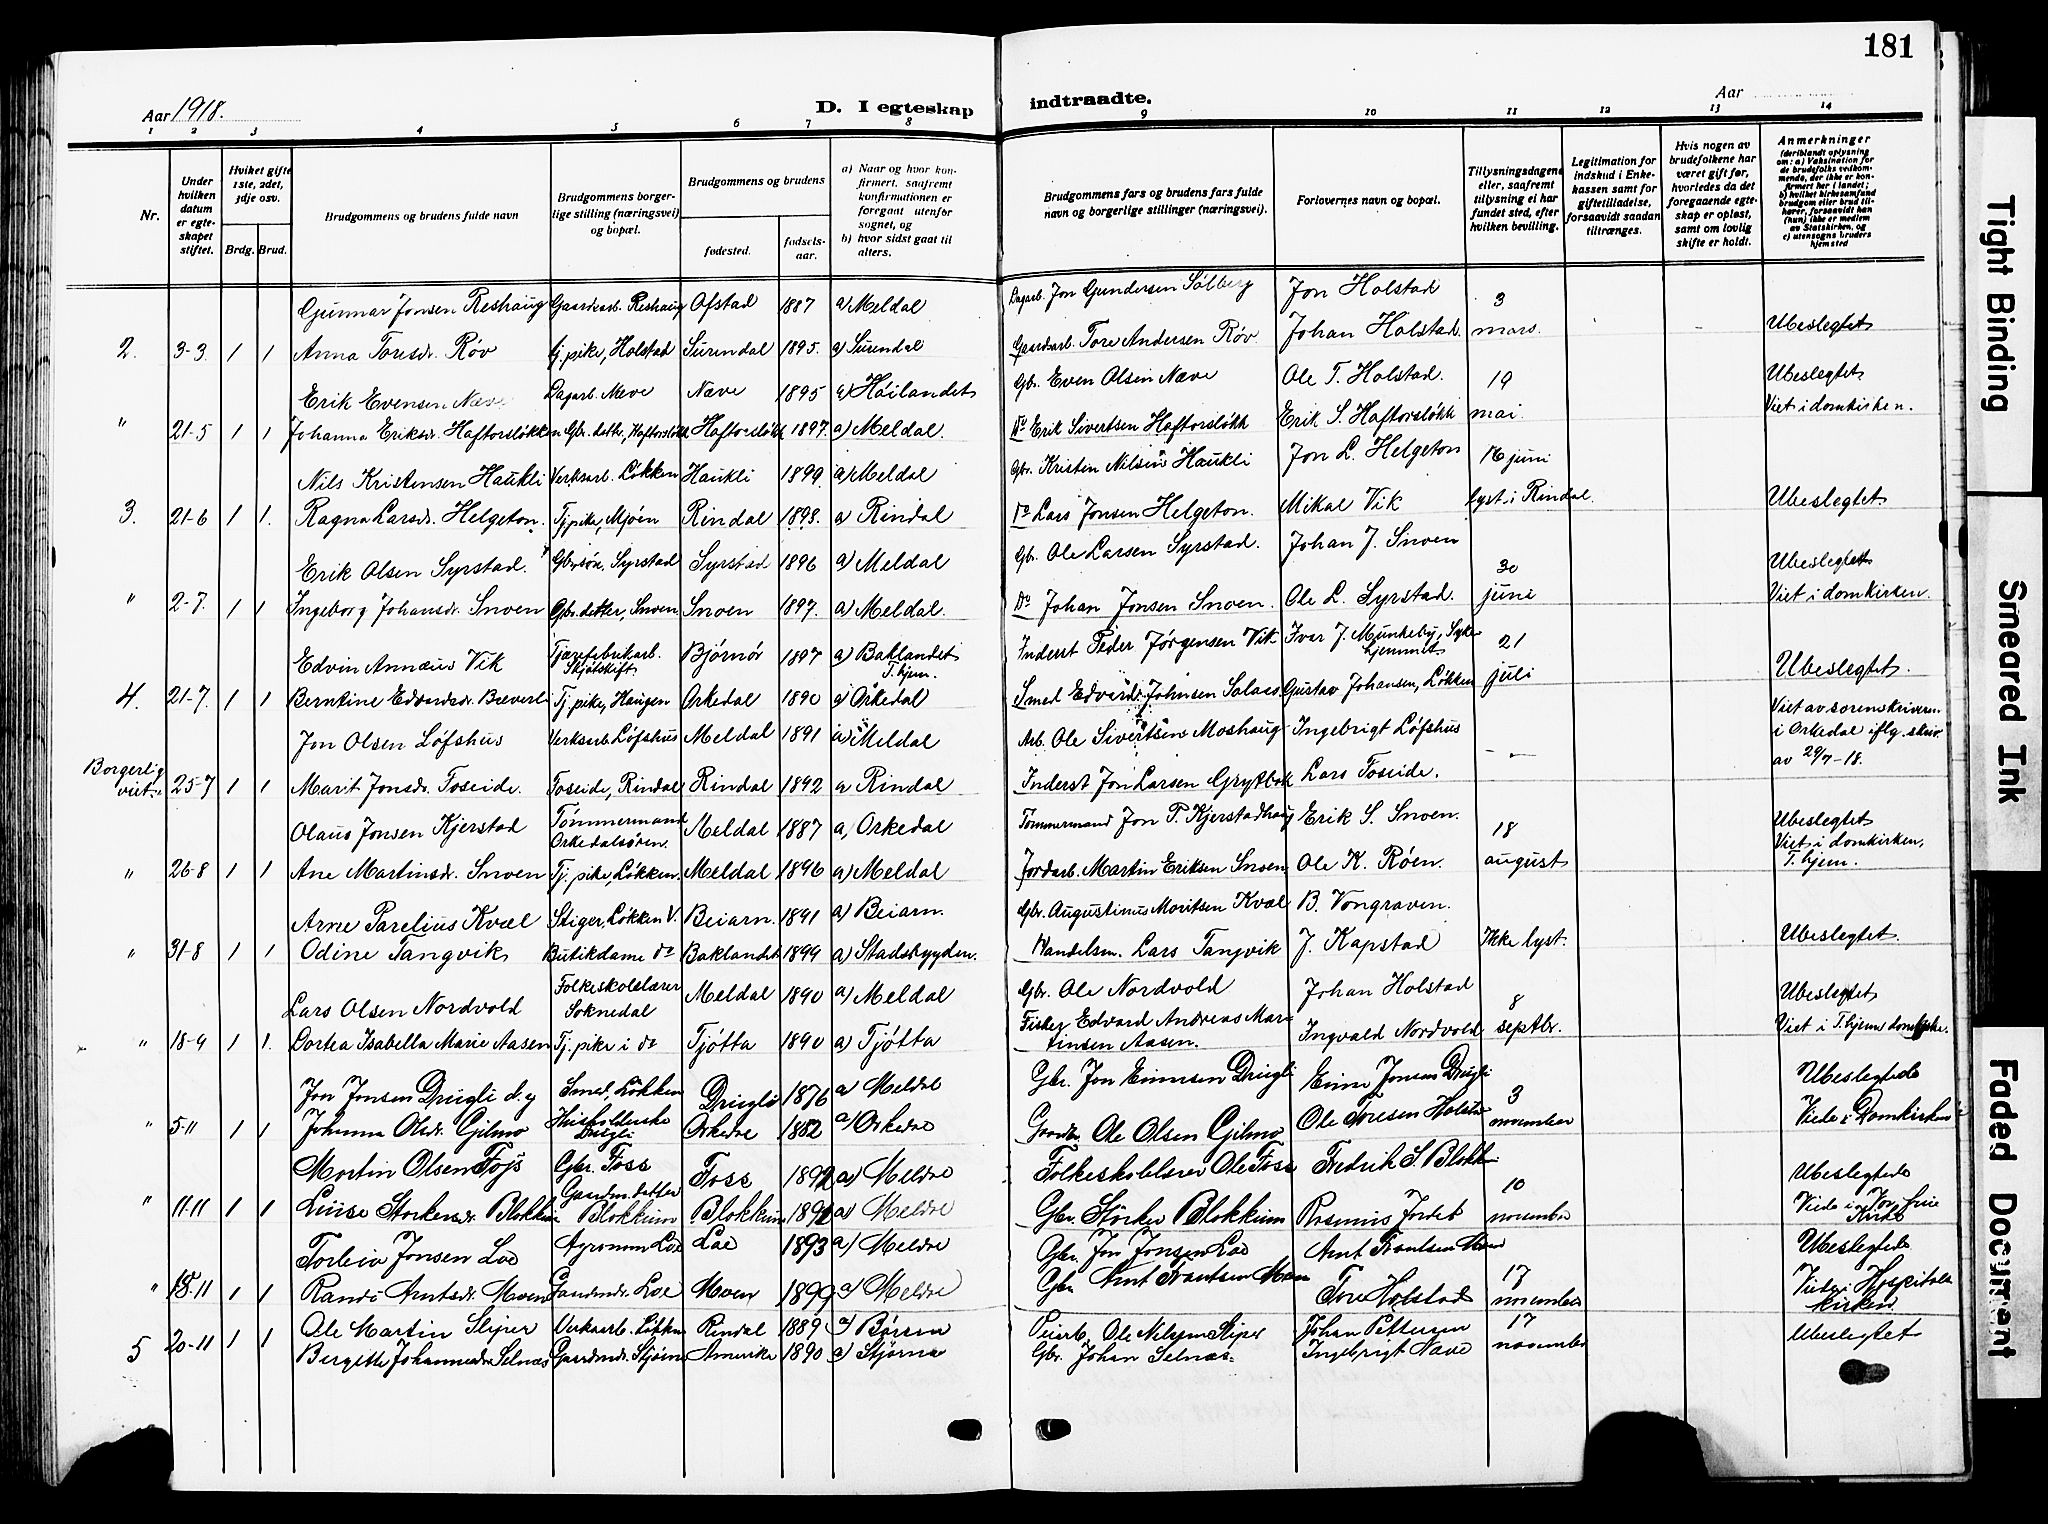 181
Aar 1918.
D. I egteskap indtraadte.
Aar
1 2 3 4 5 6 7 8 9 10 11 12 13 14
Nr.
Under hvilken datum er egteskapet stiftet.
Hvilket gifte 1ste, 2det, 3dje osv.
Brdg. Brud.
Brudgommens og brudens fulde navn
Brudgommens borgerlige stilling (næringsvei) og bopæl.
Brudgommens og brudens
fødested. fødselsaar.
a) Naar og hvor konfirmert, saafremt konfirmationen er foregaat utenfor sognet, og
b) hvor sidst gaat til alters.
Brudgommens fars og brudens fars fulde navn og borgerlige stillinger (næringsvei).
Forlovernes navn og bopæl.
Tillysningsdagene eller, saafremt tillysning ei har fundet sted, efter hvilken bevilling.
Legitimation for indskud i Enkekassen samt for giftetilladelse, forsaavidt saadan tiltrænges.
Hvis nogen av brudefolkene har været gift før, hvorledes da det foregaaende egteskap er opløst, samt om lovlig skifte er holdt.
Anmerkninger (deriblandt oplysning om: a) Vaksination for de brudefolks vedkommende, der ikke er konfirmert her i landet; b) hvilket kirkesamfund brudgom eller brud tilhører, forsaavidt han (hun) ikke er medlem av Statskirken, og c) utensogns bruders hjemsted
Gunnar Jonsen Reshaug Gaardsarb. Reshaug Ofstad 1887 a) Meldal Dagarb. Jon Gundersen Solberg Jon Holstad 3
2. 3-3. 1 1 Anna Toresdr. Røv Tj. pike, Holstad Surendal 1895. a) Surendal Gaardsarb. Tore Andersen Røv Johan Holstad. mars. Ubeslegtet
Erik Evensen Næve Dagarb. Næve Næve 1895 a) Høilandet Gbr. Even Olsen Næve Ole T. Holstad. 19 Ubeslegtet
" 21-5 1 1 Johanna Eriksdr. Haftorsløkken Gbr. datter, Haftorsløkk Haftorsløkk 1897. a) Meldal. Do Erik Sivertsen Haftorsløkk Erik S. Haftorsløkk mai. Viet i domkirken.
Nils Kristensen Haukli Verksarb. Løkken Haukli 1899. a) Meldal Gbr. Kristen Nilsen Haukli Jon L. Helgeton 16 juni
3. 21-6 1 1. Ragna Larsdr. Helgeton. Tj. pike, Mjøen Rindal 1898. a) Rindal Do Lars Jonsen Helgeton. Mikal Vik lyst i Rindal. Ubeslegtet
Erik Olsen Syrstad. Gbr.søn, Syrstad Syrstad 1896 a) Meldal Gbr. Ole Larsen Syrstad. Johan J. Snoen 30 Ubeslegtet
" 2-7. 1 1 Ingeborg Johansdr. Snoen Gbr. datter, Snoen. Snoen 1897. a) Meldal. Do Johan Jonsen Snoen. Ole L. Syrstad. juni Viet i domkirken.
Edvin Annæus Vik Tjærefabrikarb. Skjøtskift Bjørnør 1897 a) Baklandet T.hjem. Inderst Peder Jørgensen Vik Ivar J. Munkeby, Sykehjemmet 21
4. 21-7. 1 1 Berntine Edvardsdr. Breverli Tj. pike, Haugen Orkedal 1890 a) Orkedal Smed Edvard Johnsen Salaas Gustav Johansen, Løkken juli Ubeslegtet.
Jon Olsen Løfshus Verksarb. Løfshus Meldal 1891 a) Meldal Arb. Ole Sivertsen Moshaug Ingebrigt Løfshus Viet av sorenskriveren i Orkedal iflg. skriv. av 29/7-18.
Borgerlig viet. 25-7 1 1 Marit Jonsdr. Foseide. Foseide, Rindal Rindal 1892 a) Rindal Inderst Jon Larsen Grytbak Lars Foseide. —
Olaus Jonsen Kjerstad Tømmermand Orkedalsøren. Meldal 1887 a) Orkedal Tømmermand Jon P. Kjerstadhaug Erik S. Snoen. 18 Ubeslegtet
" 26-8 1 1 Ane Martinsdr. Snoen Tj. pike, Løkken. Meldal 1896 a) Meldal Jordarb. Martin Eriksen Snoen Ole K. Røen. august Viet i domkirken, T.hjem.
Arne Parelius Kvæl Stiger, Løkken V. Beiarn. 1891 a) Beiarn. Gbr. Augustinus Moritsen Kvæl B. Vongraven.
" 31-8 1 1 Odine Tangvik Butikdame do Baklandet 1899 a) Stadsbygden. Handelsm. Lars Tangvik J. Kapstad Ikke lyst. Ubeslegtet.
Lars Olsen Nordvold Folkeskolelærer Soknedal Meldal 1890 a) Meldal Gbr. Ole Nordvold Johan Holstad 8 Ubeslegtet
" 18-9 1 1. Dortea Isabella Marie Aasen Tj. pike i do Tjøtta 1890 a) Tjøtta Fisker Edvard Andreas Martinsen Aasen. Ingvald Nordvold septbr. Viet i T.hjems domkirke.
Jon Jonsen Drugli d.y Smed, Løkken Drugli 1876 a) Meldal Gbr. Jon Einarsen Drugli Einar Jonsen Drugli 3 Ubeslegtede
" 5-11 1 1 Johanna Olsdr. Gilmo Husholderske Drugli Orkedal 1882 a) Orkedal Gaardbr. Ole Olsen Gilmo Ole Toresen Holstad november Viede i Domkirken
Martin Olsen Foss Gbr. Foss Foss 1892 a) Meldal Folkeskolelærer Ole Foss Fredrik S. Blokkum 10 Ubeslegtede
" 11-11 1 1 Luise Størkersdr. Blokkum Gaardm. datter Blokkum Blokkum 1892 a) Meldal Gbr. Størker Blokkum Rasmus Jordet november Viede i Vor frue Kirke
Torleiv Jonsen Loe Agronom Loe Loe 1893 a) Meldal Gbr. Jon Jonsen Loe Arnt Frantsen Moen Ubeslegtede
" 18-11 1 1 Randi Arntsdr. Moen Gaardmdr. Loe Moen 1899 a) Meldal Gbr Arnt Frantsen Moen Tore Holstad 17 november Viede i Hospitalskirken
5 20-11 1 1 Ole Martin Sliper Verksarb. Løkken Rindal 1889 a) Børsen Ole Nilsen Sliper Johan Pettersen 17 Ubeslegtet
Bergitte Johannesdr Selnæs Gaardmdr. Stjørna Amerika 1890 a) Stjørna Gbr. Johan Selnæs. Ingebrigt Næve november
Tight Binding
Smeared Ink
Faded Document